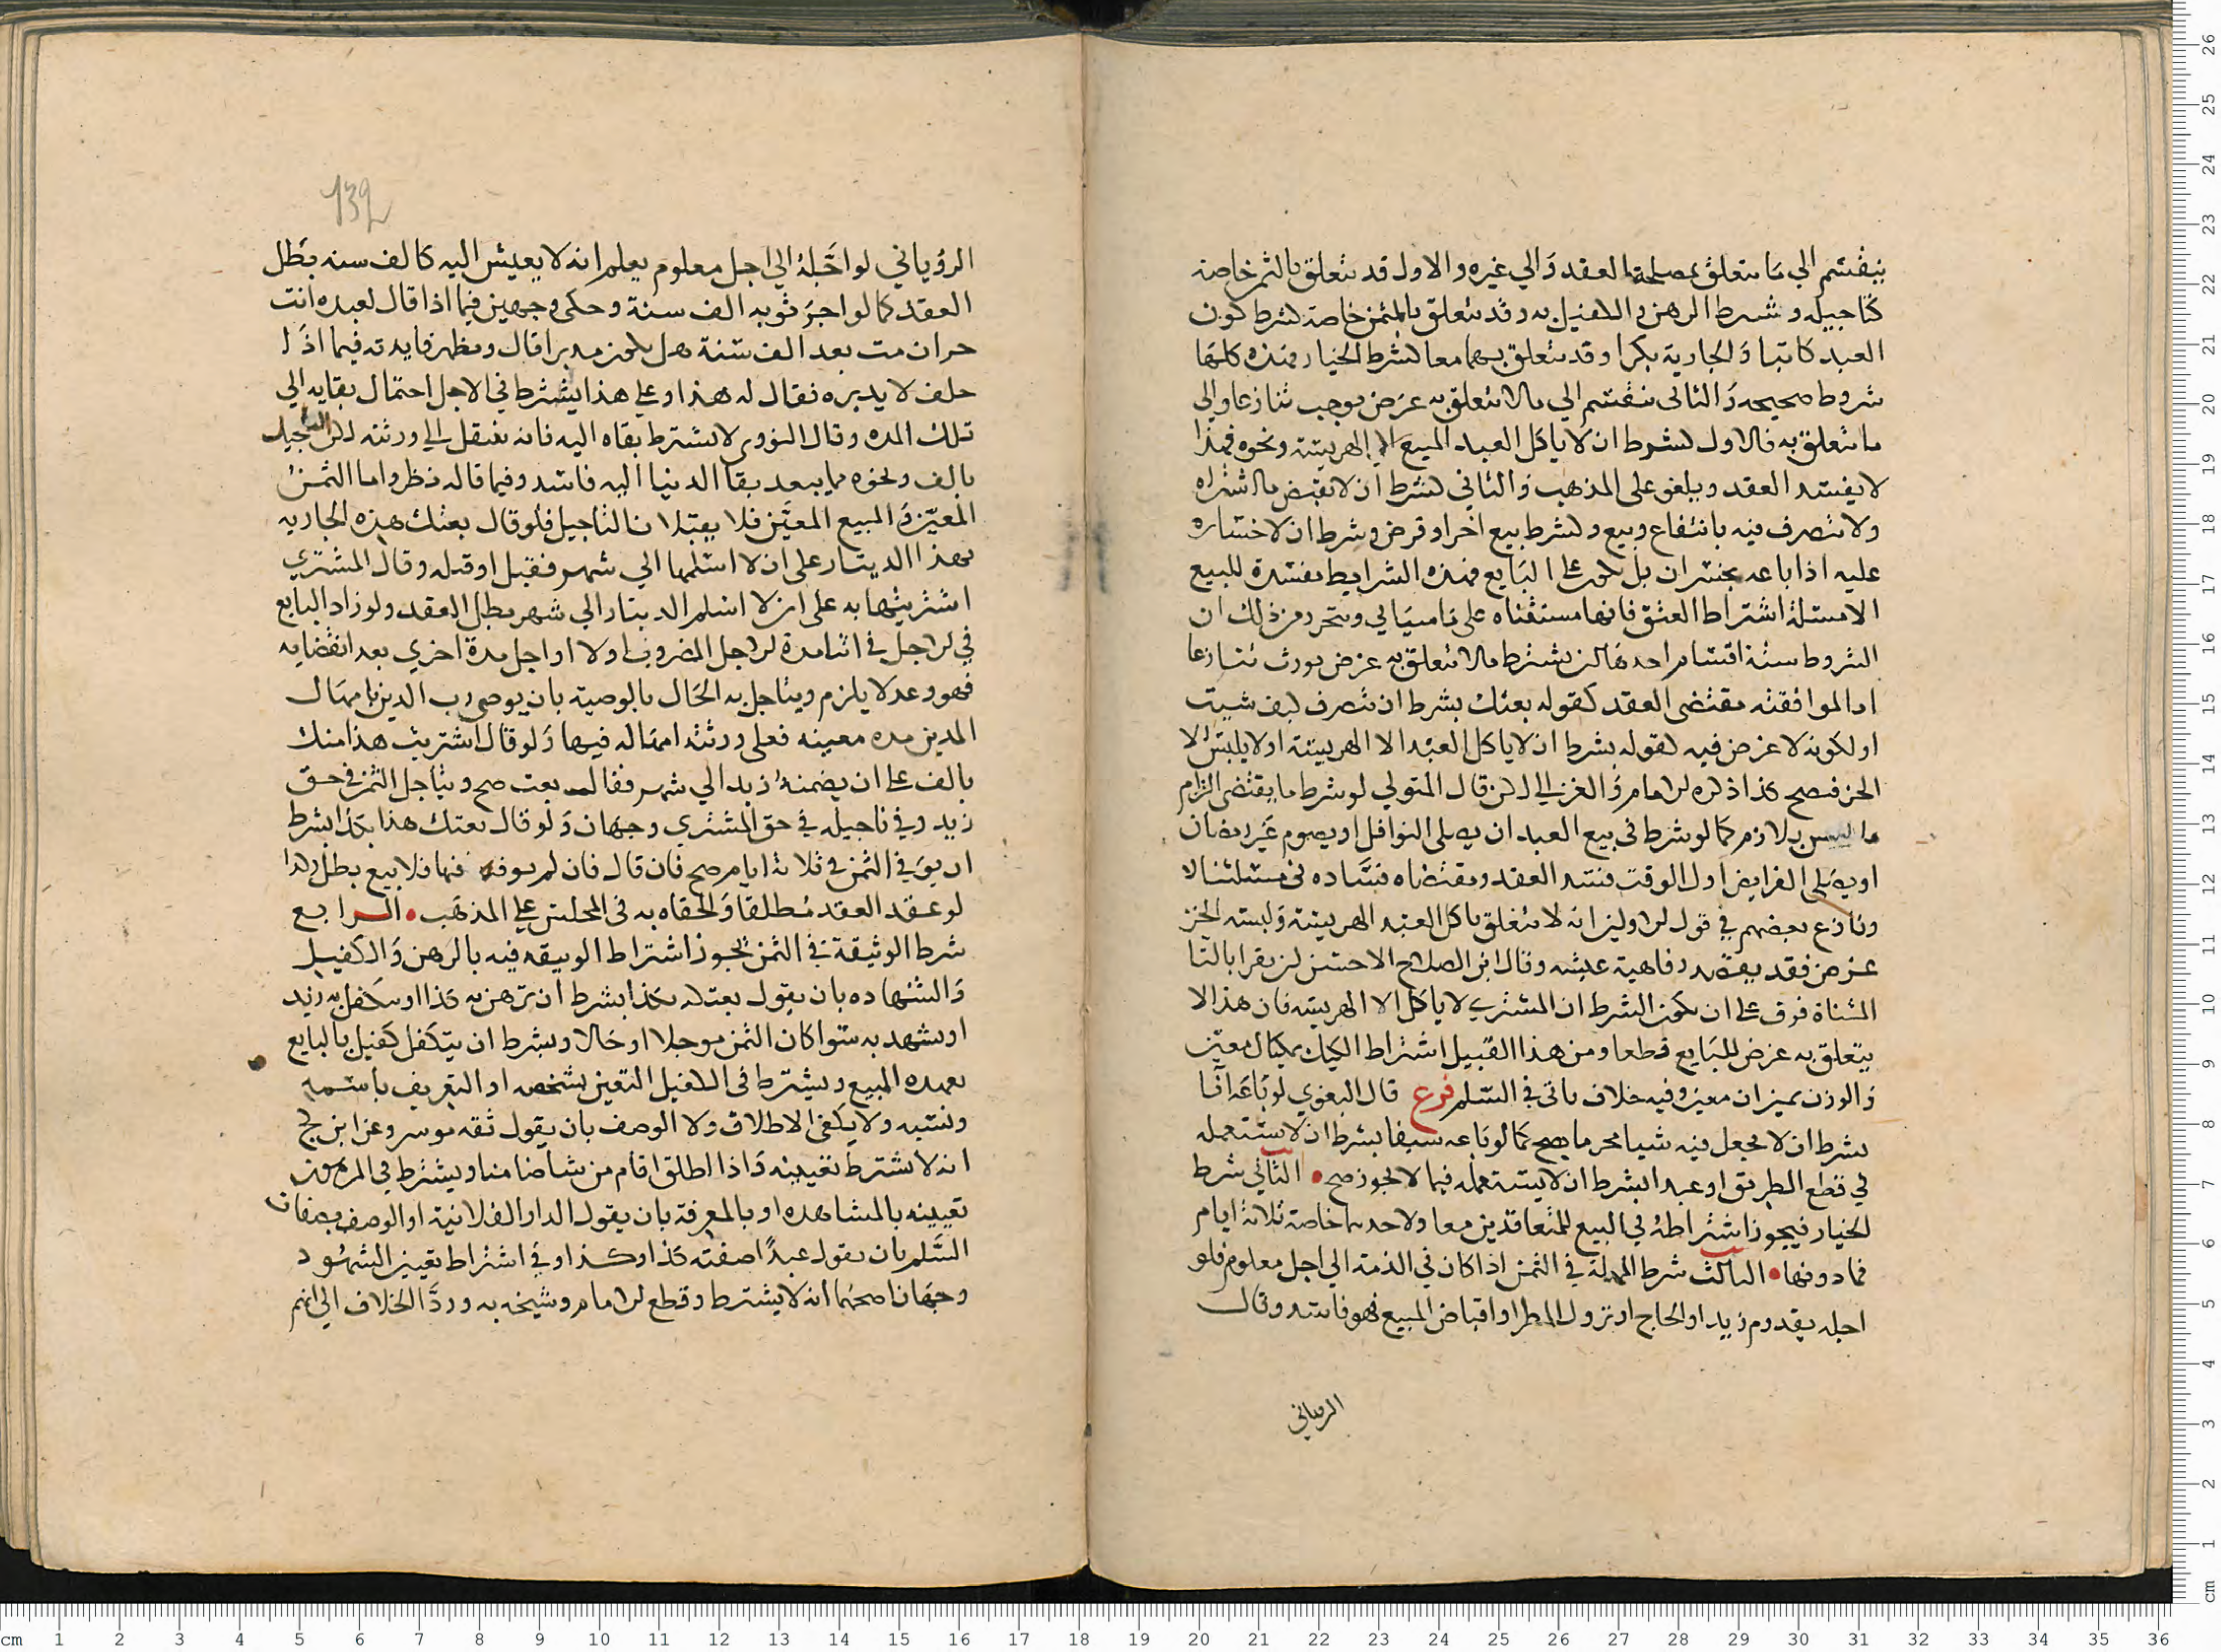 ينقسم الي ما يتعلق بمصلحة العقد والي غيره والاول قد يتعلق بالثمن خاصة
كتاجيله وشرط الرهن والكفيل به وقد يتعلق بالمثمن خاصة كشرط كون
العبد كاتبا والجارية بكرا وقد يتعلق بهما معا كشرط الخيار وهذه كلها
شروط صحيحه والثاني ينقسم الي مالا يتعلق به غرض يوجب تنازعا والي
ما يتعلق به فالاول كشرط ان لا ياكل العبد المبيع الا الهريسة ونحوه فهذا
لا يفسد العقد ويلغو على المذهب والثاني كشرط ان لا يقبض ما اشتراه
ولا يتصرف فيه بانتفاع وبيع وكشرط بيع اخر او قرض وشرط ان لا خساره
عليه اذا باعه بخسران بل يكون على البايع فهذه الشرايط مفسدة للبيع
الا مسئلة اشتراط العتق فانها مستثناه على ما سياتي ويتحرر من ذلك ان
الشروط ستة اقسام احدها ان يشترط مالا يتعلق به غرض يورث تنازعا
اما لموافقته مقتضى العقد كقوله بعتك بشرط ان تتصرف كيف شيت
او لكونه لا غرض فيه كقوله بشرط ان لا ياكل العبد الا الهريسة او لا يلبس الا
الخز فيصح كذا ذكره الامام والغزالي لكن قال المتولي لو شرط ما يقتضى الزام
ما ليس بلازم كما لو شرط في بيع العبد ان يصلى النوافل او يصوم غير رمضان
او يصلى الفرايض اول الوقت فسد العقد ومقتضاه فساده في مسئلتنا لا
ونازع بعضهم في قول الاولين انه لا يتعلق باكل العبد الهريسة ولبسه الخز
غرض فقد يقصد رفاهية عيشه وقال ابن الصلاح الاحسن ان يقرا بالتا
المثناة فوق على ان يكون الشرط ان المشتري لا ياكل الا الهريسه فان هذا لا
يتعلق به غرض للبايع قطعا ومن هذا القبيل اشتراط الكيل بمكيال معين
والوزن بميزان معين وفيه خلاف ياتي في السلم فرع قال البغوي لو باعه انا
بشرط ان لا يجعل فيه شيا محرما يصح كما لو باعه سيفا بشرط ان لا يستعمله
في قطع الطريق او عبدا بشرط ان لا يستعمله فيما لا يجوز صح • الثاني شرط
الخيار فيجوز اشتراطه في البيع للمتعاقدين معا ولاحدهما خاصة ثلاثة ايام
فما دونها • الثالث شرط المهلة في الثمن اذا كان في الذمة الي اجل معلوم فلو
اجله بقدوم زيد او الحاج او نزول المطر او اقباض المبيع فهو فاسد وقال
الروياني
132
الرؤياني لو اجله الي اجل معلوم يعلم انه لا يعيش اليه كالف سنه بطل
العقد كما لو اجر ثوبه الف سنة وحكى وجهين فيما اذا قال لعبده انت
حر ان مت بعد الف سنة هل يكون مدبرا قال ويظهر فايدته فيما اذا
حلف لا يدبره فقال له هذا وعلى هذا يشترط في الاجل احتمال بقايه الي
تلك المده وقال النووي لا يشترط بقاه اليه فانه ينتقل الي ورثته لكن التاجيل
بالف ونحوه مما يبعد بقا الدنيا اليه فاسد وفيما قاله نظر واما الثمن
المعين والمبيع المعين فلا يقبلان التاجيل فلو قال بعتك هذه الجاريه
بهذا الدينار على ان لا اسلمها الي شهر فقبل او قبله وقال المشتري
اشتريتها به على ان لا اسلم الدينار الي شهر بطل العقد ولو زاد البايع
في الاجل في اثنا مدة الاجل المضروب اولا او اجل مدة اخري بعد انقضايه
فهو وعد لا يلزم ويتاجل به الحال بالوصية بان يوصي رب الدين بامهال
المدين مده معينه فعلى ورثته امهاله فيها ولو قال اشتريت هذا منك
بالف على ان يضمنه زيد الي شهر فقال بعت صح ويتاجل الثمن في حق
زيد وفي تاجيله في حق المشتري وجهان ولو قال بعتك هذا بكذا بشرط
ان يوفي الثمن في ثلاثة ايام صح فان قال فان لم يوفه فيها فلا بيع بطل وكذا
لو عقد العقد مطلقا والحقاه به في المجلس على المذهب • الرابع
شرط الوثيقة في الثمن يجوز اشتراط الوثيقه فيه بالرهن والكفيل
والشهاده بان يقول بعتك بكذا بشرط ان ترهن به كذا او يتكفل به زيد
او يشهد به سوا كان الثمن موجلا او حالا وبشرط ان يتكفل كفيل بالبايع
بعهده المبيع ويشترط في الكفيل التعين بشخصه او التعريف باسمه
ونسبه ولا يكفي الاطلاق ولا الوصف بان يقول ثقه موسر وعن ابن كج
انه لا يشترط تعيينه واذا اطلق اقام من شا ضامنا ويشترط في المرهون
تعيينه بالمشاهده او بالمعرفة بان يقول الدار الفلانية او الوصف بصفات
السلم بان يقول عبدا صفته كذا وكذا وفي اشتراط تعيين الشهود
وجهان اصحهما انه لا يشترط وقطع الامام وشيخه به وردا الخلاف الي انهم